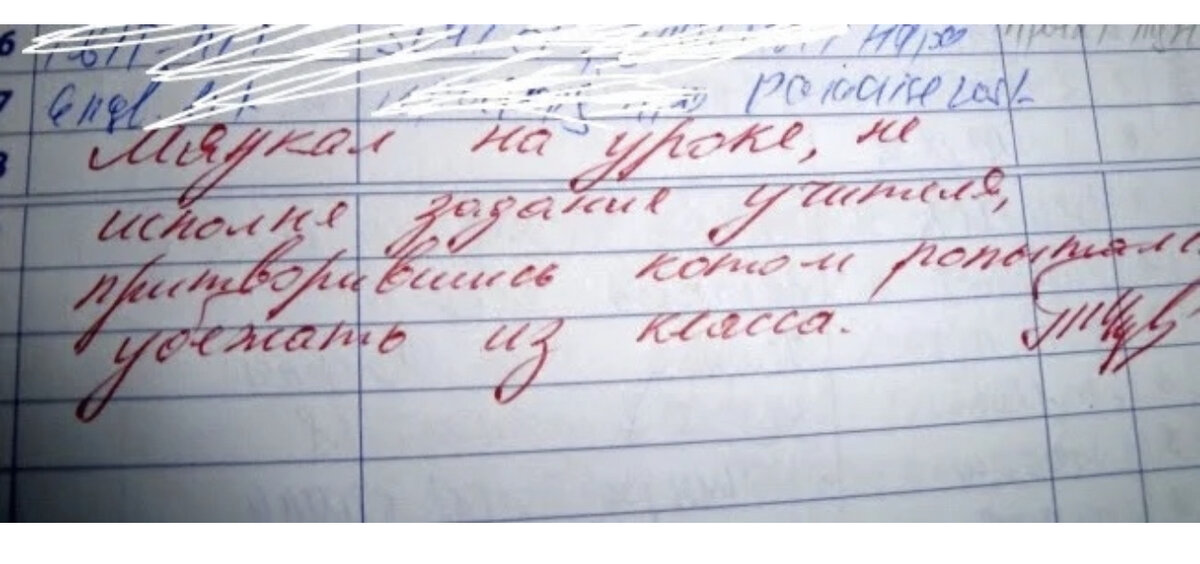 Engl
Мяукал на уроке, не
исполня задание учителя,
притворившись котом попытался
убежать из класса.